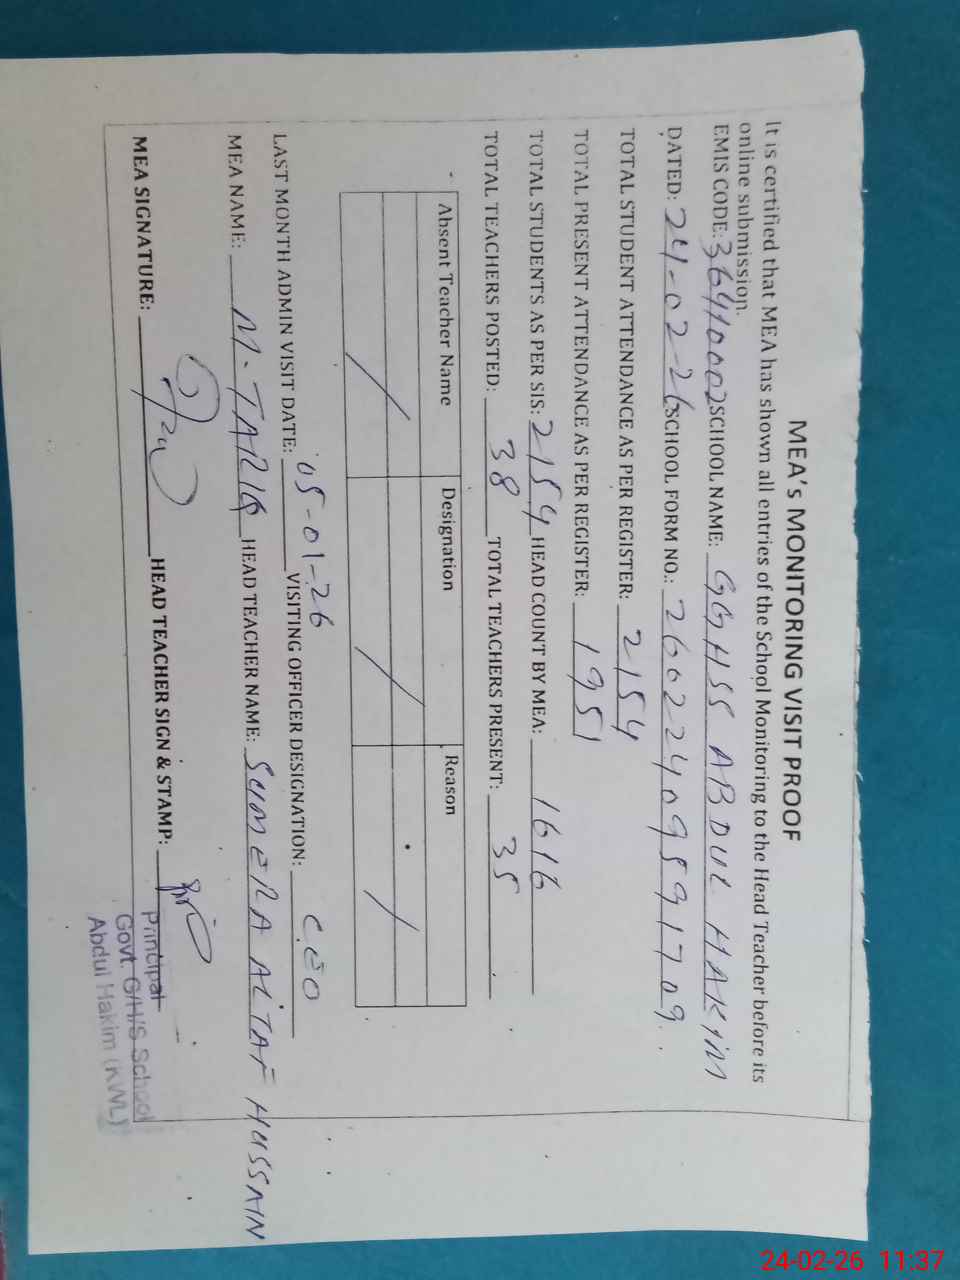 MEA's MONITORING VISIT PROOF
It is certified that MEA has shown all entries of the School Monitoring to the Head Teacher before its
online submission.
EMIS CODE: 36410002 SCHOOL NAME: GGHSS ABDUL HAKIM
DATED: 24-02-26 SCHOOL FORM NO.: 26022409591709
TOTAL STUDENT ATTENDANCE AS PER REGISTER: 2154
TOTAL PRESENT ATTENDANCE AS PER REGISTER: 1951
TOTAL STUDENTS AS PER SIS: 2154 HEAD COUNT BY MEA: 1616
TOTAL TEACHERS POSTED: 38 TOTAL TEACHERS PRESENT: 35
Absent Teacher Name Designation Reason
LAST MONTH ADMIN VISIT DATE: 05-01-26 VISITING OFFICER DESIGNATION: CEO
MEA NAME: M. TARIQ HEAD TEACHER NAME: SUMERA ALTAF HUSSAIN
MEA SIGNATURE: HEAD TEACHER SIGN & STAMP:
Principal
Govt. G/H/S School
Abdul Hakim (KWL)
24-02-26 11:37